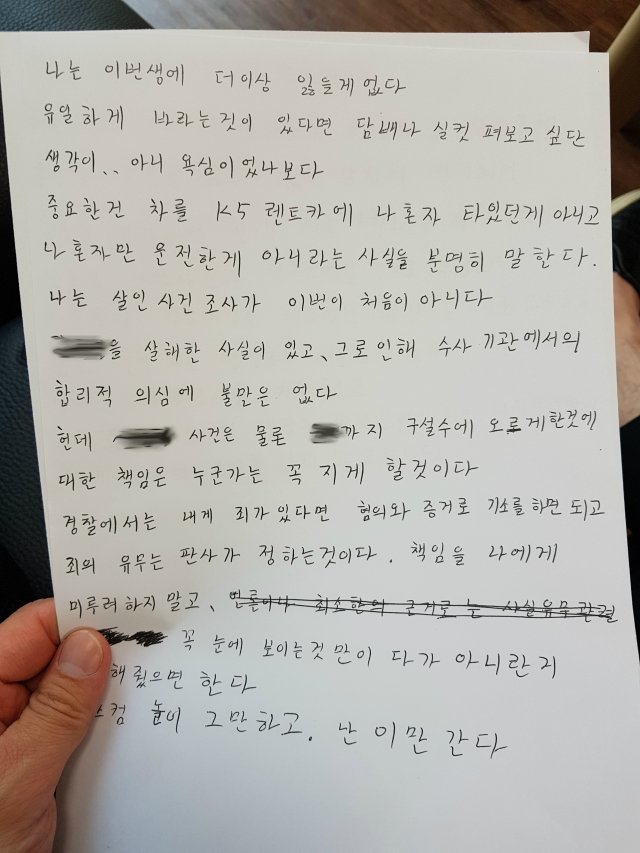 나는 이번생에 더이상 잃을게 없다
유일하게 바라는것이 있다면 담배나 실컷 펴보고 싶단
생각이.. 아니 욕심이 었나보다
중요한건 차를 K5 렌트카에 나혼자 타있던게 아니고
나혼자만 운전한게 아니라는 사실을 분명히 말한다.
나는 살인사건 조사가 이번이 처음이 아니다
을 살해한 사실이 있고, 그로인해 수사 기관에서의
합리적 의심에 불만은 없다
헌데 사건은 물론 까지 구설수에 오르게한것에
대한 책임은 누군가는 꼭 지게 할것이다
경찰에서는 내게 죄가 있다면 혐의와 증거로 기소를 하면 되고
죄의 유무는 판사가 정하는것이다. 책임을 나에게
미루려하지 말고,
꼭 눈에 보이는것 만이 다가 아니란걸
해줬으면 한다
스컴 놀이 그만하고. 난 이만 간다